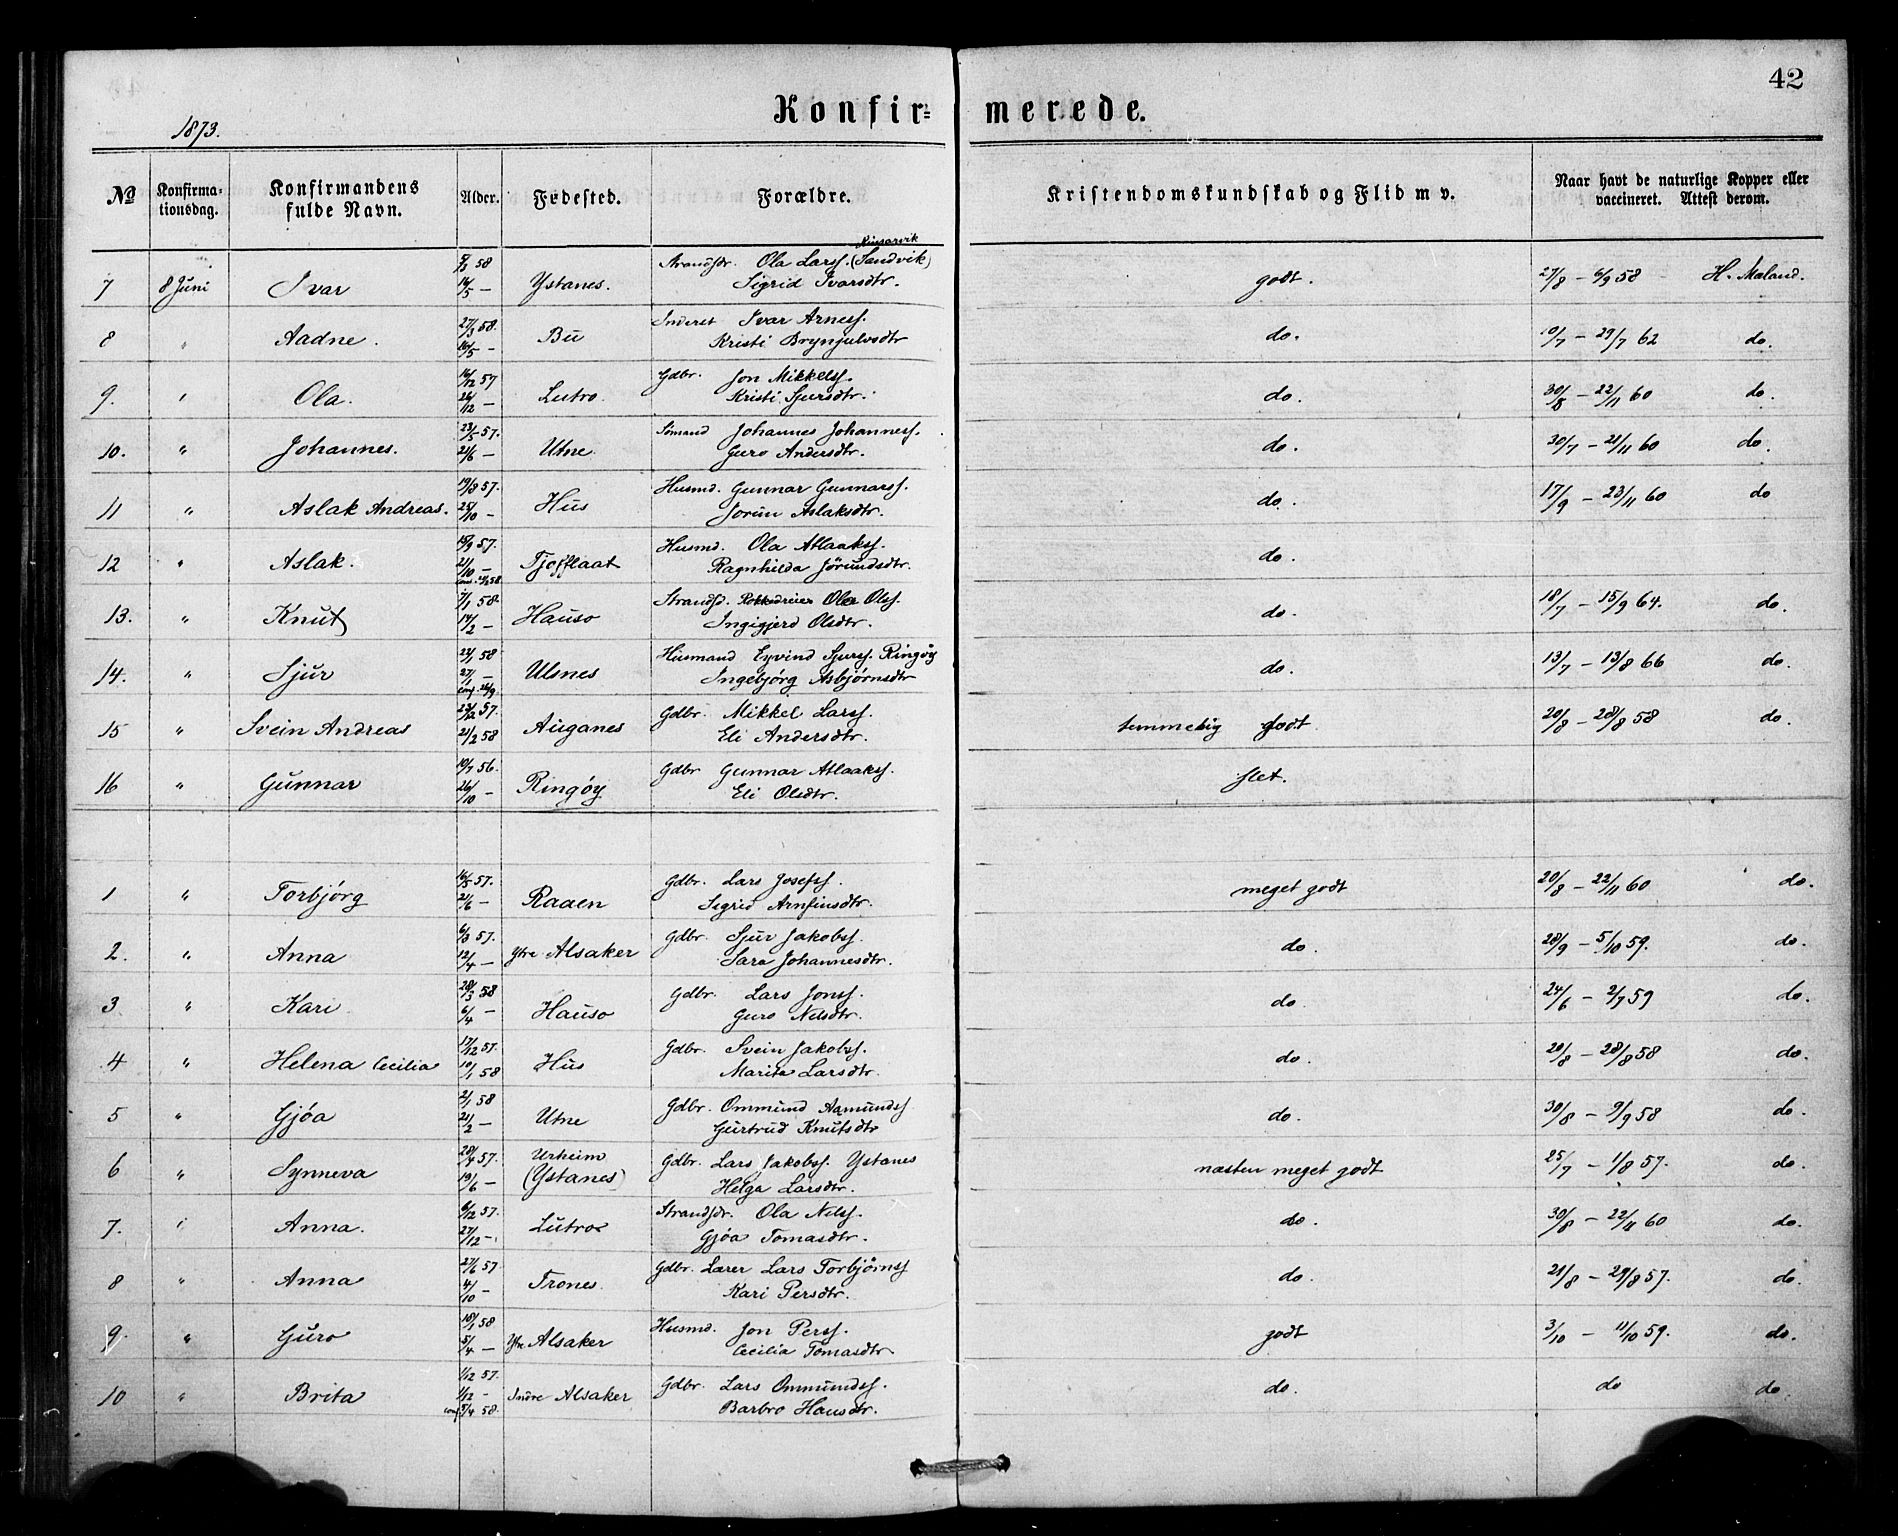 42
Konfir= merede.
1873.
No Konfirma-tionsdag. Konfirmandens fulde Navn. Alder. Fødested. Forældre. Kristendomskundskab og Flid m v. Naar havt de naturlige Kopper eller vaccineret. Attest derom.
Kinsarvik
7 8 Juni Ivar 58 Ystanes. Strandsdr. Ola Larss. (Sandvik) godt. 27/8 – 6/9 58 H. Maland.
16/5 – Sigrid Ivarsdtr.
8 " Aadne. 27/3 58. Bu Inderst Ivar Arness. do. 19/7 – 29/7 62 do.
16/5 – Kristi Brynjulvsdtr
9. " Ola. 16/12 57 Lutro. Gdbr. Jon Mikkelss. do. 30/8 – 22/11 60 do.
26/12 – Kristi Sjursdtr.
10. " Johannes. 23/5 57. Utne Sømand Johannes Johanness. do. 30/7 – 21/11 60 do.
21/6 – Guro Andersdtr.
11 " Aslak Andreas. 19/8 57. Hus Husmd. Gunnar Gunnarss. do. 17/9 – 23/11 60 do
25/10 – Jorun Aslaksdtr.
12 " Aslak. 15/9 57. Tjoflaat Husmd. Ola Atlaakss. do.
21/10 – Ragnhilda Jørundsdtr.
13. " Knut 7/1 58 Hauso Strandsd. Rokkedreier Ola Olss. do. 18/7 – 15/9 64. do.
14/2 – Ingigjerd Olsdtr.
14. " Sjur 22/1 58 Ulsnes Husmand Eyvind Sjurss. Ringøy do. 13/7 – 13/8 66 do.
27/1 – Ingebjørg Asbjørnsdtr
conf. 26/9.
15 " Svein Andreas 23/12 57. Auganes Gdbr. Mikkel Larss. temmelig godt. 20/8 – 28/8 58 do.
21/2 58 Eli Andersdtr.
16 " Gunnar 19/7 56. Ringøy Gdbr Gunnar Atlaakss. slet.
26/10 – Eli Olsdtr.
1 " Torbjørg 16/5 57. Raaen Gdbr. Lars Josefss. meget godt 20/8 – 22/11 60 do.
21/6 – Sigrid Arnfinsdtr.
2. " Anna 6/3 57. Ytre Alsaker Gdbr. Sjur Jakobss. do. 28/9 – 5/10 59. do.
12/4 – Sara Johannesdtr.
3 " Kari 28/3 58 Hauso Gdbr. Lars Jonss. do. 24/6 – 2/7 59 do.
6/4 – Guro Nilsdtr.
4 " Helena Cecilia 17/12 57. Hus Gdbr. Svein Jakobss. do. 20/8 – 28/8 58 do.
10/1 58 Marita Larsdtr.
5 " Gjøa 2/1 58 Utne Gdbr. Ommund Aamundss do. 30/8 – 9/9 58 do.
21/2 – Gurtrud Knutsdtr
6 " Synneva 28/4 57. Urheim Gdbr. Lars Jakobss. Ystanes næsten meget godt 25/7 – 1/8 57. do.
19/6 – (Ystanes) Helga Larsdtr.
7. " Anna. 6/12 57. Lutro Strandsdr. Ola Nilss. do. 30/8 – 22/11 60 do.
27/12 – Gjøa Tomasdtr.
8 " Anna 27/6 57 Trones. Gdbr. Lærer Lars Torbjørnss do. 21/8 – 29/8 57. do.
4/10 – Kari Persdtr.
9. " Guro 18/1 58 Ytre Alsaker Husmd. Jon Perss. godt 3/10 – 11/10 59. do.
5/4 – Cecilia Tomasdtr
10 " Brita 1/12 57. Indre Alsaker Gdbr. Lars Ommundss. do. do do
1/12 – Barbro Hansdtr.
conf 5/4 58.